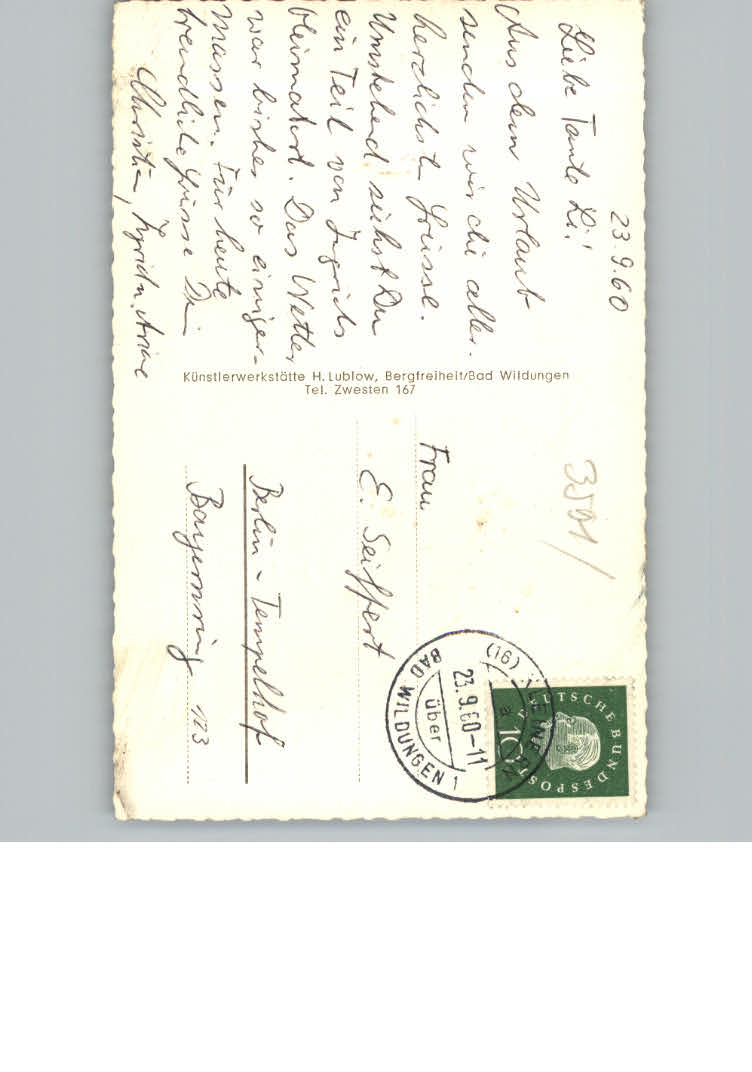 23.9.60
Liebe Tante Li!
Aus dem Urlaub
senden wir die aller-
herzlichsten Grüsse.
Umstehend siehst Du
ein Teil von Ingrids
Heimatort. Das Wetter
war bisher so einiger-
massen. Für heute
freundliche Grüsse Dir
Christian, Ingrid u.
Künstlerwerkstätte H. Lublow, Bergfreiheit/Bad Wildungen
Tel. Zwesten 167
3591/
Frau
E. Seiffert
Berlin - Tempelhof
Bayernring 123
(16)
a
23.9.60-11
über
BAD WILDUNGEN 1
DEUTSCHE BUNDESPOST
10